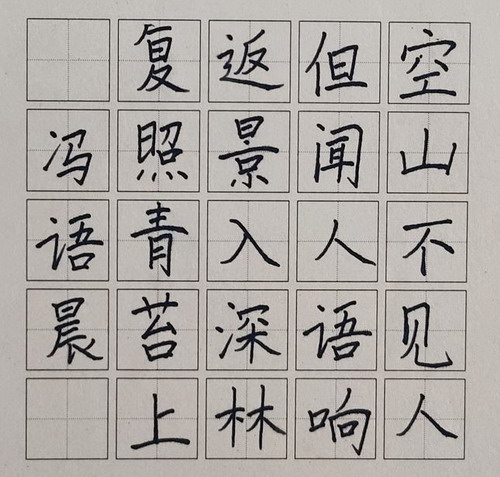 空山不见人
但闻人语响
返景入深林
复照青苔上
冯语晨